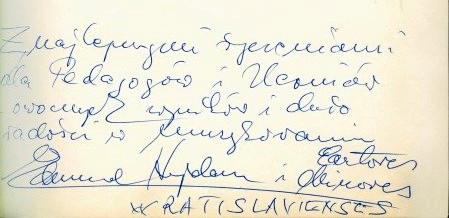 Z najlepszymi życzeniami
dla Pedagogów i Uczniów
owocnych wyników i dużo
radości w muzykowaniu
Edmund Kajdasz i Cantores
Minores
WRATISLAVIENSES